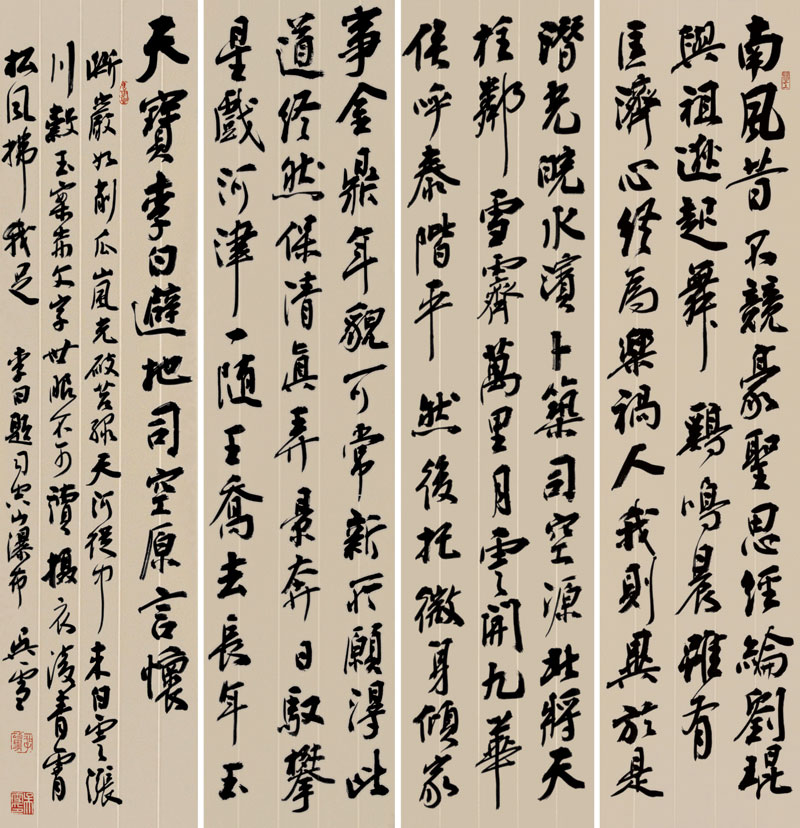 南風昔不競豪聖思經綸劉琨
與祖逖起舞鷄鳴晨雖有
匡濟心終為樂禍人我則異於是
潛光皖水濱卜築司空源北將天
柱鄰雪霽萬里月雲開九華
俟呼泰階平然後托微身傾家
事金鼎年貌可常新所願得此
道終然保清眞弄景奔日馭攀
星戲河津一随王喬去長年玉
天寶李白避地司空原言懷
斷巖如削瓜嵐光破苔緑天河從中来白雲漲
川穀玉案赤文字世眼不可讀攝衣淩青霄
松風拂我足 李白題司空山瀑布 吳雪